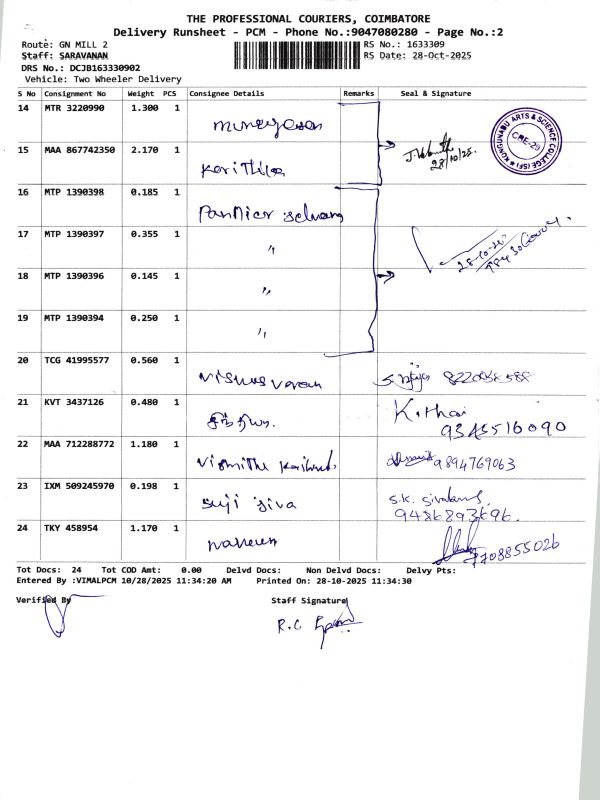 THE PROFESSIONAL COURIERS, COIMBATORE
Delivery Runsheet - PCM - Phone No.:9047080280 - Page No.:2
Route: GN MILL 2 RS No.: 1633309
Staff: SARAVANAN RS Date: 28-Oct-2025
DRS No.: DCJB163330902
Vehicle: Two Wheeler Delivery
S No Consignment No Weight PCS Consignee Details Remarks Seal & Signature
14 MTR 3220990 1.300 1 Murugesan
KUNGUNADU ARTS & SCIENCE COLLEGE (SF)
CBE-29
15 MAA 867742350 2.170 1 Karithika
28/10/25.
16 MTP 1390398 0.185 1 Pannier Selvam
17 MTP 1390397 0.355 1 "
28-10-25
18 MTP 1390396 0.145 1 "
19 MTP 1390394 0.250 1 "
20 TCG 41995577 0.560 1 Vishusvaran
21 KVT 3437126 0.480 1 K.thai
9345516090
22 MAA 712288772 1.180 1 9894769063
23 IXM 509245970 0.198 1 Suji Jiva S.K.
9486893696.
24 TKY 458954 1.170 1 Naveen 7708855026
Tot Docs: 24 Tot COD Amt: 0.00 Delvd Docs: Non Delvd Docs: Delvy Pts:
Entered By :VIMALPCM 10/28/2025 11:34:20 AM Printed On: 28-10-2025 11:34:30
Verified By Staff Signature
R.C